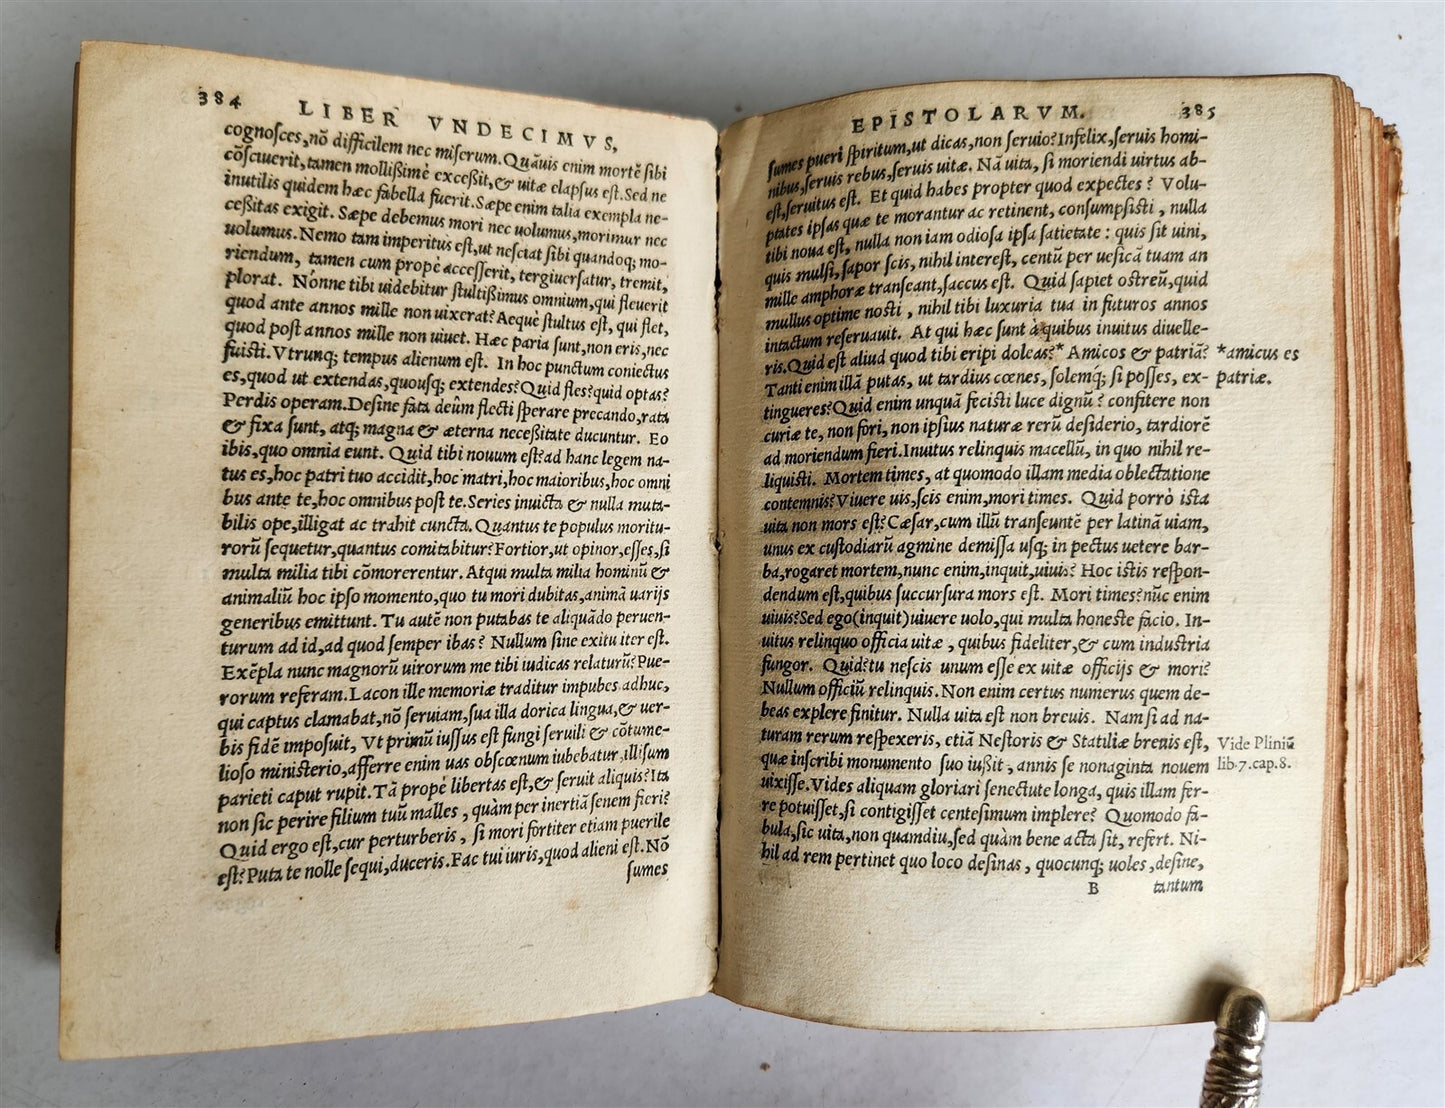 384 LIBER VNDECIMVS,
cognosces,nõ difficilem nec miserum.Quãuis enim mortẽ sibi
cõsciuerit,tamen mollißimè exceßit,& uitæ elapsus est.Sed ne
inutilis quidem hæc fabella fuerit.Sæpe enim talia exempla ne-
ceßitas exigit. Sæpe debemus mori nec uolumus,morimur nec
uolumus.Nemo tam imperitus est,ut nesciat sibi quandoq; mo-
riendum, tamen cum propè accesserit, tergiuersatur, tremit,
plorat. Nónne tibi uidebitur stultißimus omnium,qui fleuerit
quod ante annos mille non uixerat? Aequè stultus est, qui flet,
quod post annos mille non uiuet. Hæc paria sunt,non eris,nec
fuisti.Vtrunq; tempus alienum est. In hoc punctum coniectus
es,quod ut extendas,quousq; extendes? Quid fles?quid optas?
Perdis operam.Desine fata deûm flecti sperare precando,rata
& fixa sunt, atq; magna & æterna neceßitate ducuntur. Eo
ibis,quo omnia eunt. Quid tibi nouum est?ad hanc legem na-
tus es,hoc patri tuo accidit,hoc matri,hoc maioribus,hoc omni
bus ante te,hoc omnibus post te.Series inuicta & nulla muta-
bilis ope,illigat ac trahit cuncta.Quantus te populus moritu-
rorũ sequetur,quantus comitabitur?Fortior,ut opinor,esses,si
multa milia tibi cõmorerentur. Atqui multa milia hominũ &
animaliũ hoc ipso momento,quo tu mori dubitas,animã uarijs
generibus emittunt. Tu autẽ non putabas te aliquãdo peruen-
turum ad id,ad quod semper ibas? Nullum sine exitu iter est.
Exẽpla nunc magnorũ uirorum me tibi iudicas relaturũ?Pue-
rorum referam.Lacon ille memoriæ traditur impubes adhuc,
qui captus clamabat,nõ seruiam,sua illa dorica lingua,& uer-
bis fidẽ imposuit, Vt primũ iussus est fungi seruili & cõtume-
lioso ministerio,afferre enim uas obscœnum iubebatur,illisum
parieti caput rupit.Tã propè libertas est,& seruit aliquis?Ita
non sic perire filium tuũ malles , quàm per inertiã senem fieri?
Quid ergo est,cur perturberis , si mori fortiter etiam puerile
est?Puta te nolle sequi,duceris.Fac tui iuris,quod alieni est.Nõ
sumes
EPISTOLARVM. 385
sumes pueri spiritum,ut dicas,non seruio?Infelix,seruis homi-
nibus,seruis rebus,seruis uitæ. Nã uita, si moriendi uirtus ab-
est,seruitus est. Et quid habes propter quod expectes? Volu-
ptates ipsas quæ te morantur ac retinent, consumpsisti , nulla
tibi noua est, nulla non iam odiosa ipsa satietate : quis sit uini,
quis mulsi,sapor scis, nihil interest, centũ per uesicã tuam an
mille amphoræ transeant,saccus est. Quid sapiet ostreũ,quid
mullus optime nosti , nihil tibi luxuria tua in futuros annos
intactum reseruauit. At qui hæc sunt à quibus inuitus diuelle-
ris.Quid est aliud quod tibi eripi doleas?* Amicos & patriã?
*amicus es
patriæ.
Tanti enim illã putas, ut tardius cœnes, solemq; si posses, ex-
tingueres?Quid enim unquã fecisti luce dignũ? confitere non
curiæ te, non fori, non ipsius naturæ rerũ desiderio, tardiorẽ
ad moriendum fieri.Inuitus relinquis macellũ, in quo nihil re-
liquisti. Mortem times, at quomodo illam media oblectatione
contemnis?Viuere uis,scis enim,mori times. Quid porrò ista
uita non mors est?Cæsar,cum illũ transeuntẽ per latinã uiam,
unus ex custodiarũ agmine demissa usq; in pectus uetere bar-
ba,rogaret mortem,nunc enim,inquit,uiuis? Hoc istis respon-
dendum est,quibus succursura mors est. Mori times?nũc enim
uiuis?Sed ego(inquit)uiuere uolo,qui multa honeste facio. In-
uitus relinquo officia uitæ , quibus fideliter,& cum industria
fungor. Quid?tu nescis unum esse ex uitæ officijs & mori?
Nullum officiũ relinquis.Non enim certus numerus quem de-
beas explere finitur. Nulla uita est non breuis. Nam si ad na-
turam rerum respexeris, etiã Nestoris & Statiliæ breuis est,
Vide Pliniũ
lib.7.cap.8.
quæ inscribi monumento suo iußit , annis se nonaginta nouem
uixisse.Vides aliquam gloriari senectute longa, quis illam fer-
re potuisset,si contigisset centesimum implere? Quomodo fa-
bula,sic uita,non quamdiu,sed quàm bene acta sit, refert. Ni-
hil ad rem pertinet quo loco desinas , quocunq; uoles,desine,
B tantum